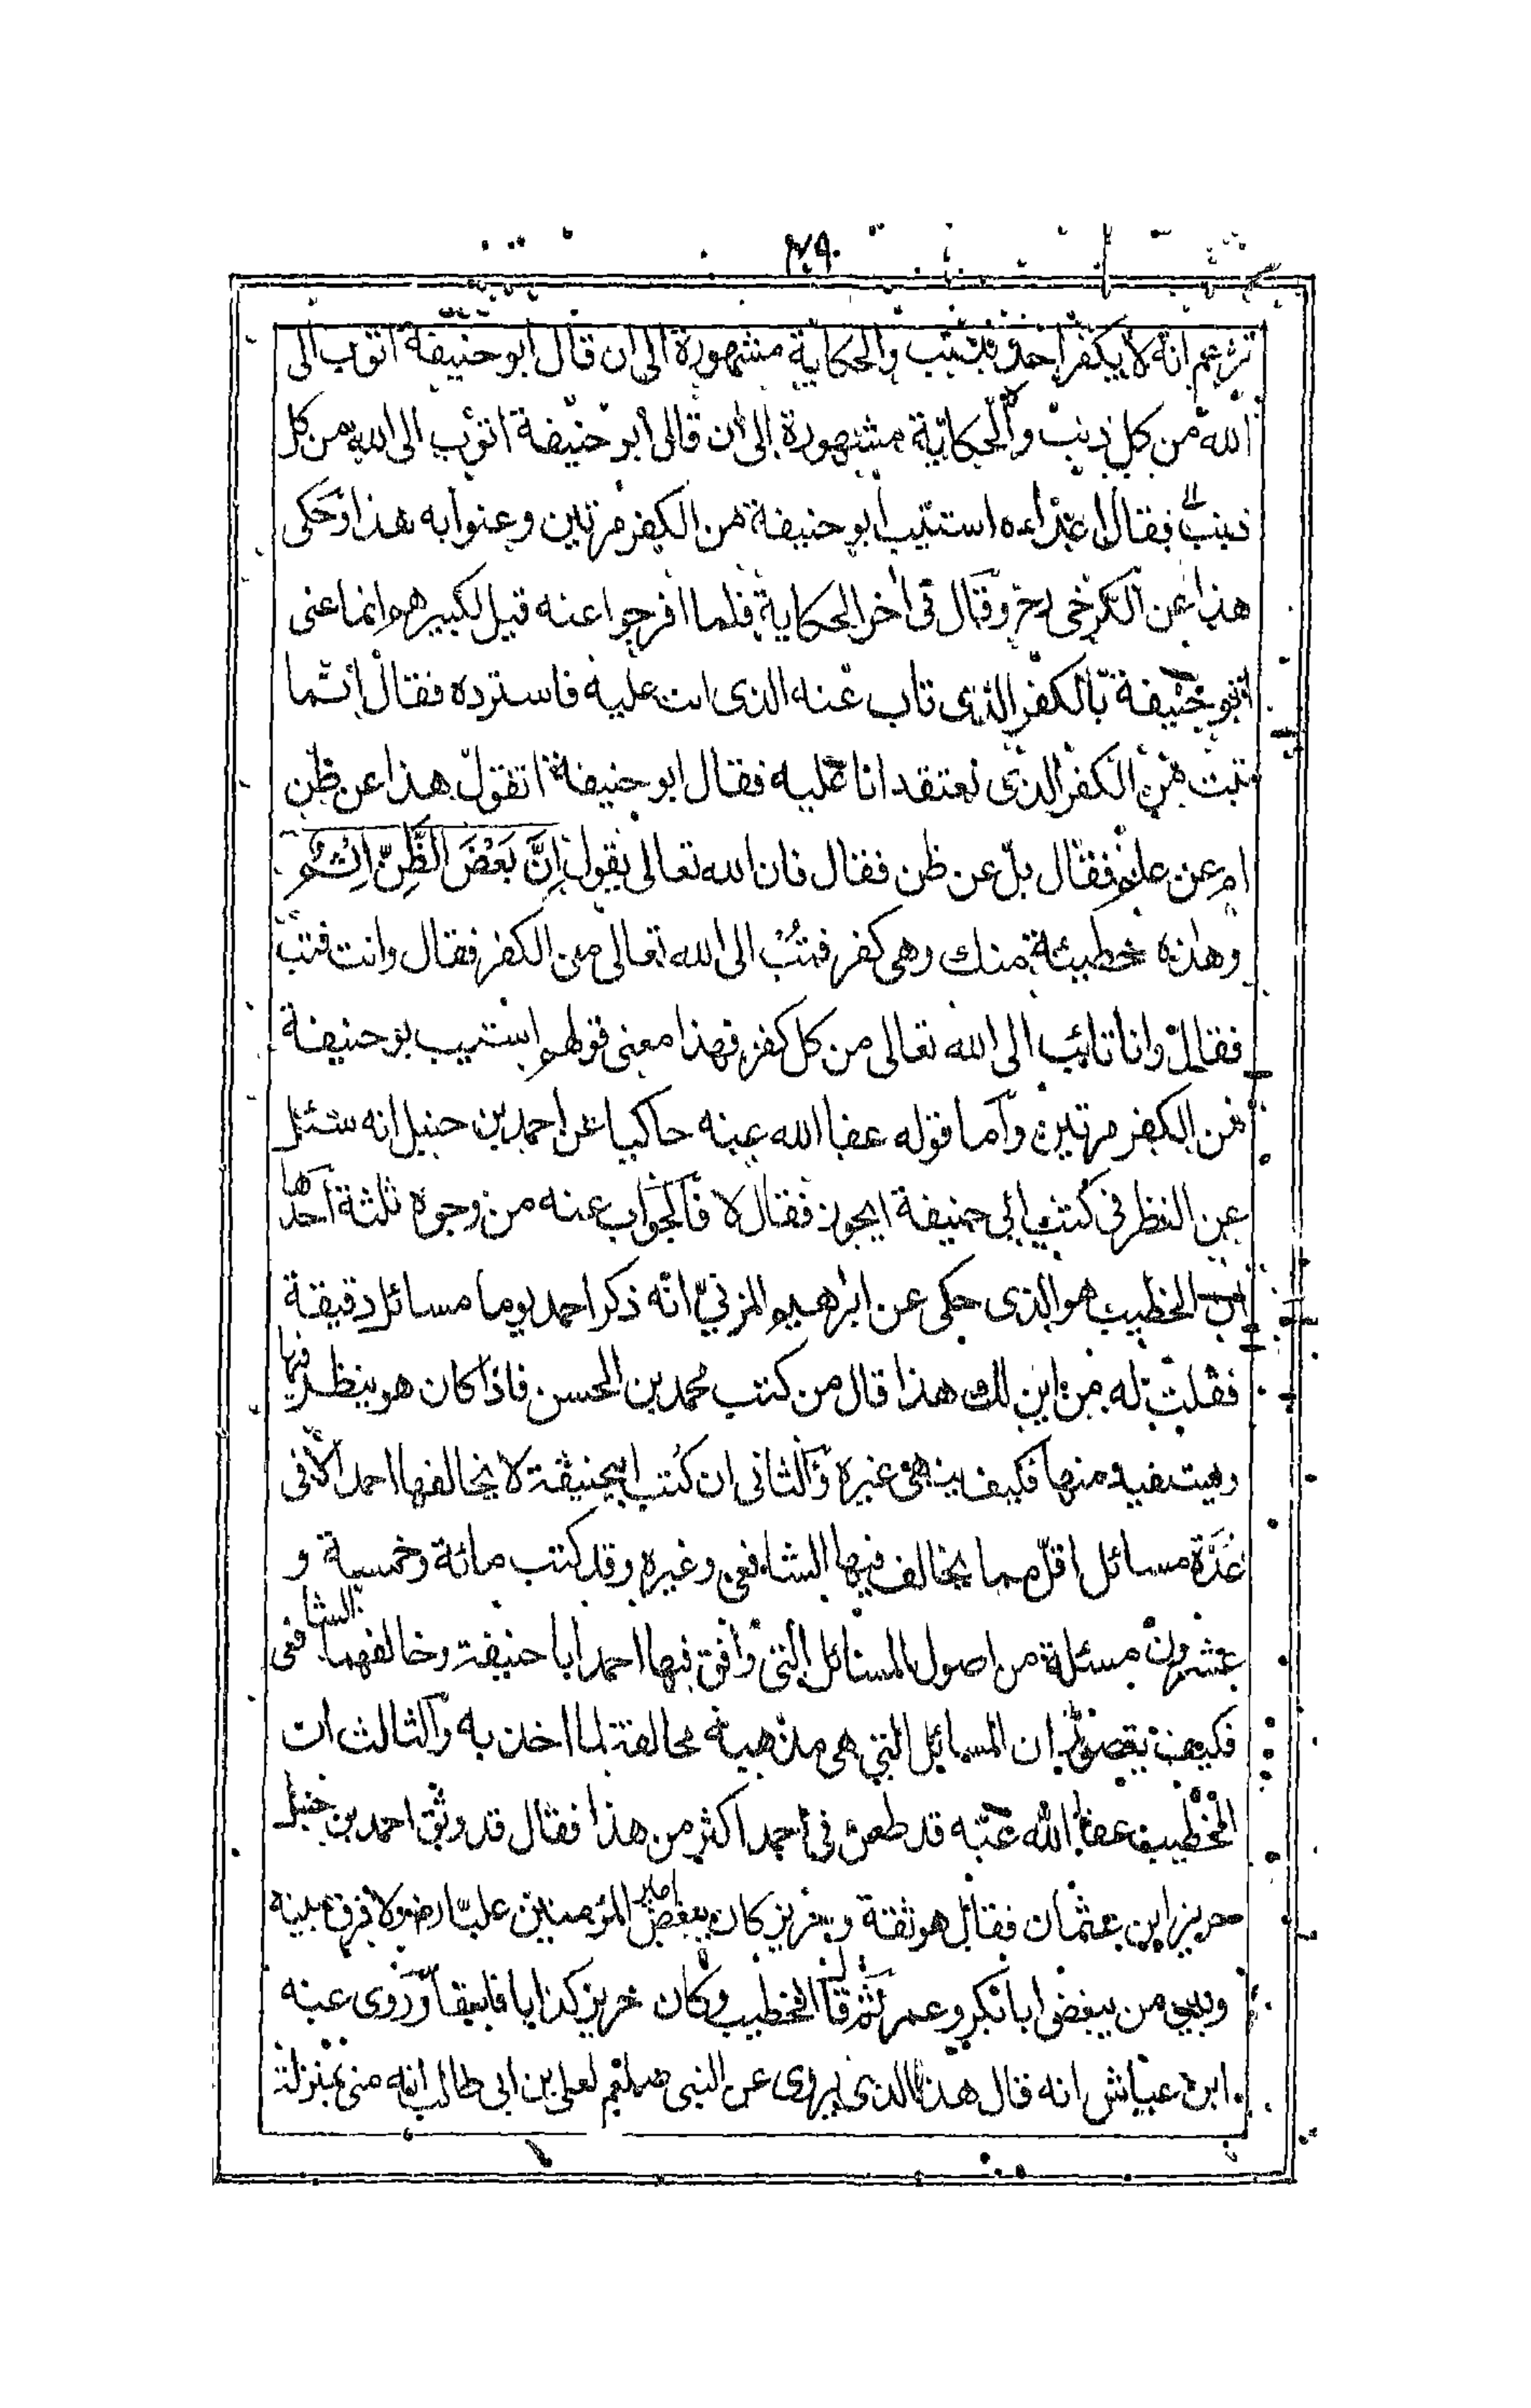 تزعم انه لا يكفر احد بذنب والحكاية مشهورة الى ان قال ابو حنيفة اتوب الى
الله من كل ذنب والحكاية مشهورة الى ان قال ابو حنيفة اتوب الى الله من كل
ذنب فقال اعداءه استتيب ابو حنيفة من الكفر مرتين وعنوا به هذا وحكى
هذا عن الكرخى رح وقال فى اخر الحكاية فلما افرجوا عنه قيل لكبيرهم انما عنى
ابو حنيفة بالكفر الذى تاب عنه الذى انت عليه فاسترده فقال انما
تبت من الكفر الذى نعتقد انا عليه فقال ابو حنيفة اتقول هذا عن ظن
ام عن علم فقال بل عن ظن فقال فان الله تعالى يقول اِنَّ بَعْضَ الظَّنِّ اِثْمٌ
وهذه خطيئة منك وهى كفر فتُبْ الى الله تعالى من الكفر فقال وانت فتب
فقال وانا تائب الى الله تعالى من كل كفر فهذا معنى قولهم استتيب بو حنيفة
من الكفر مرتين وآما قوله عفا الله عنه حاكيا عن احمد بن حنبل انه سئل
عن النظر فى كتب ابى حنيفة ايجوز فقال لا فالجواب عنه من وجوه ثلثة احدها
ان الخطيب هو الذى حكى عن ابراهيم المزنى انه ذكر احمد يوما مسائل دقيقة
فقلت له من اين لك هذا قال من كتب محمد بن الحسن فاذا كان هو ينظر فيها
منها فكيف ينهى غيره والثانى ان كتب ابيحنيفة لا يخالفها احمد الا فى
عدة مسائل اقل مما يخالف فيها الشافعى وغيره وقد كتب مائة وخمسة و
عشرون مسئلة من اصول المسائل التى وافق فيها احمد ابا حنيفة وخالفهما الشافعى
فكيف يتصور ان المسائل التى هى مذهبه مخالفة لما اخذ به والثالث ان
الخطيب عفا الله عنه قد طعن فى احمد اكثر من هذا فقال قد وثق احمد بن حنبل
حريز ابن عثمان فقال هو ثقة وحريز كان يبغض امير المؤمنين عليا رضـ ولا فرق بينه
وبين من يبغض ابا بكر وعمر ثم قال الخطيب وكان حريز كذابا فاسقا وروى عنه
ابن عياش انه قال هذا الذى يروى عن النبى صلعم لعلى بن ابى طالب انه منى بمنزلة